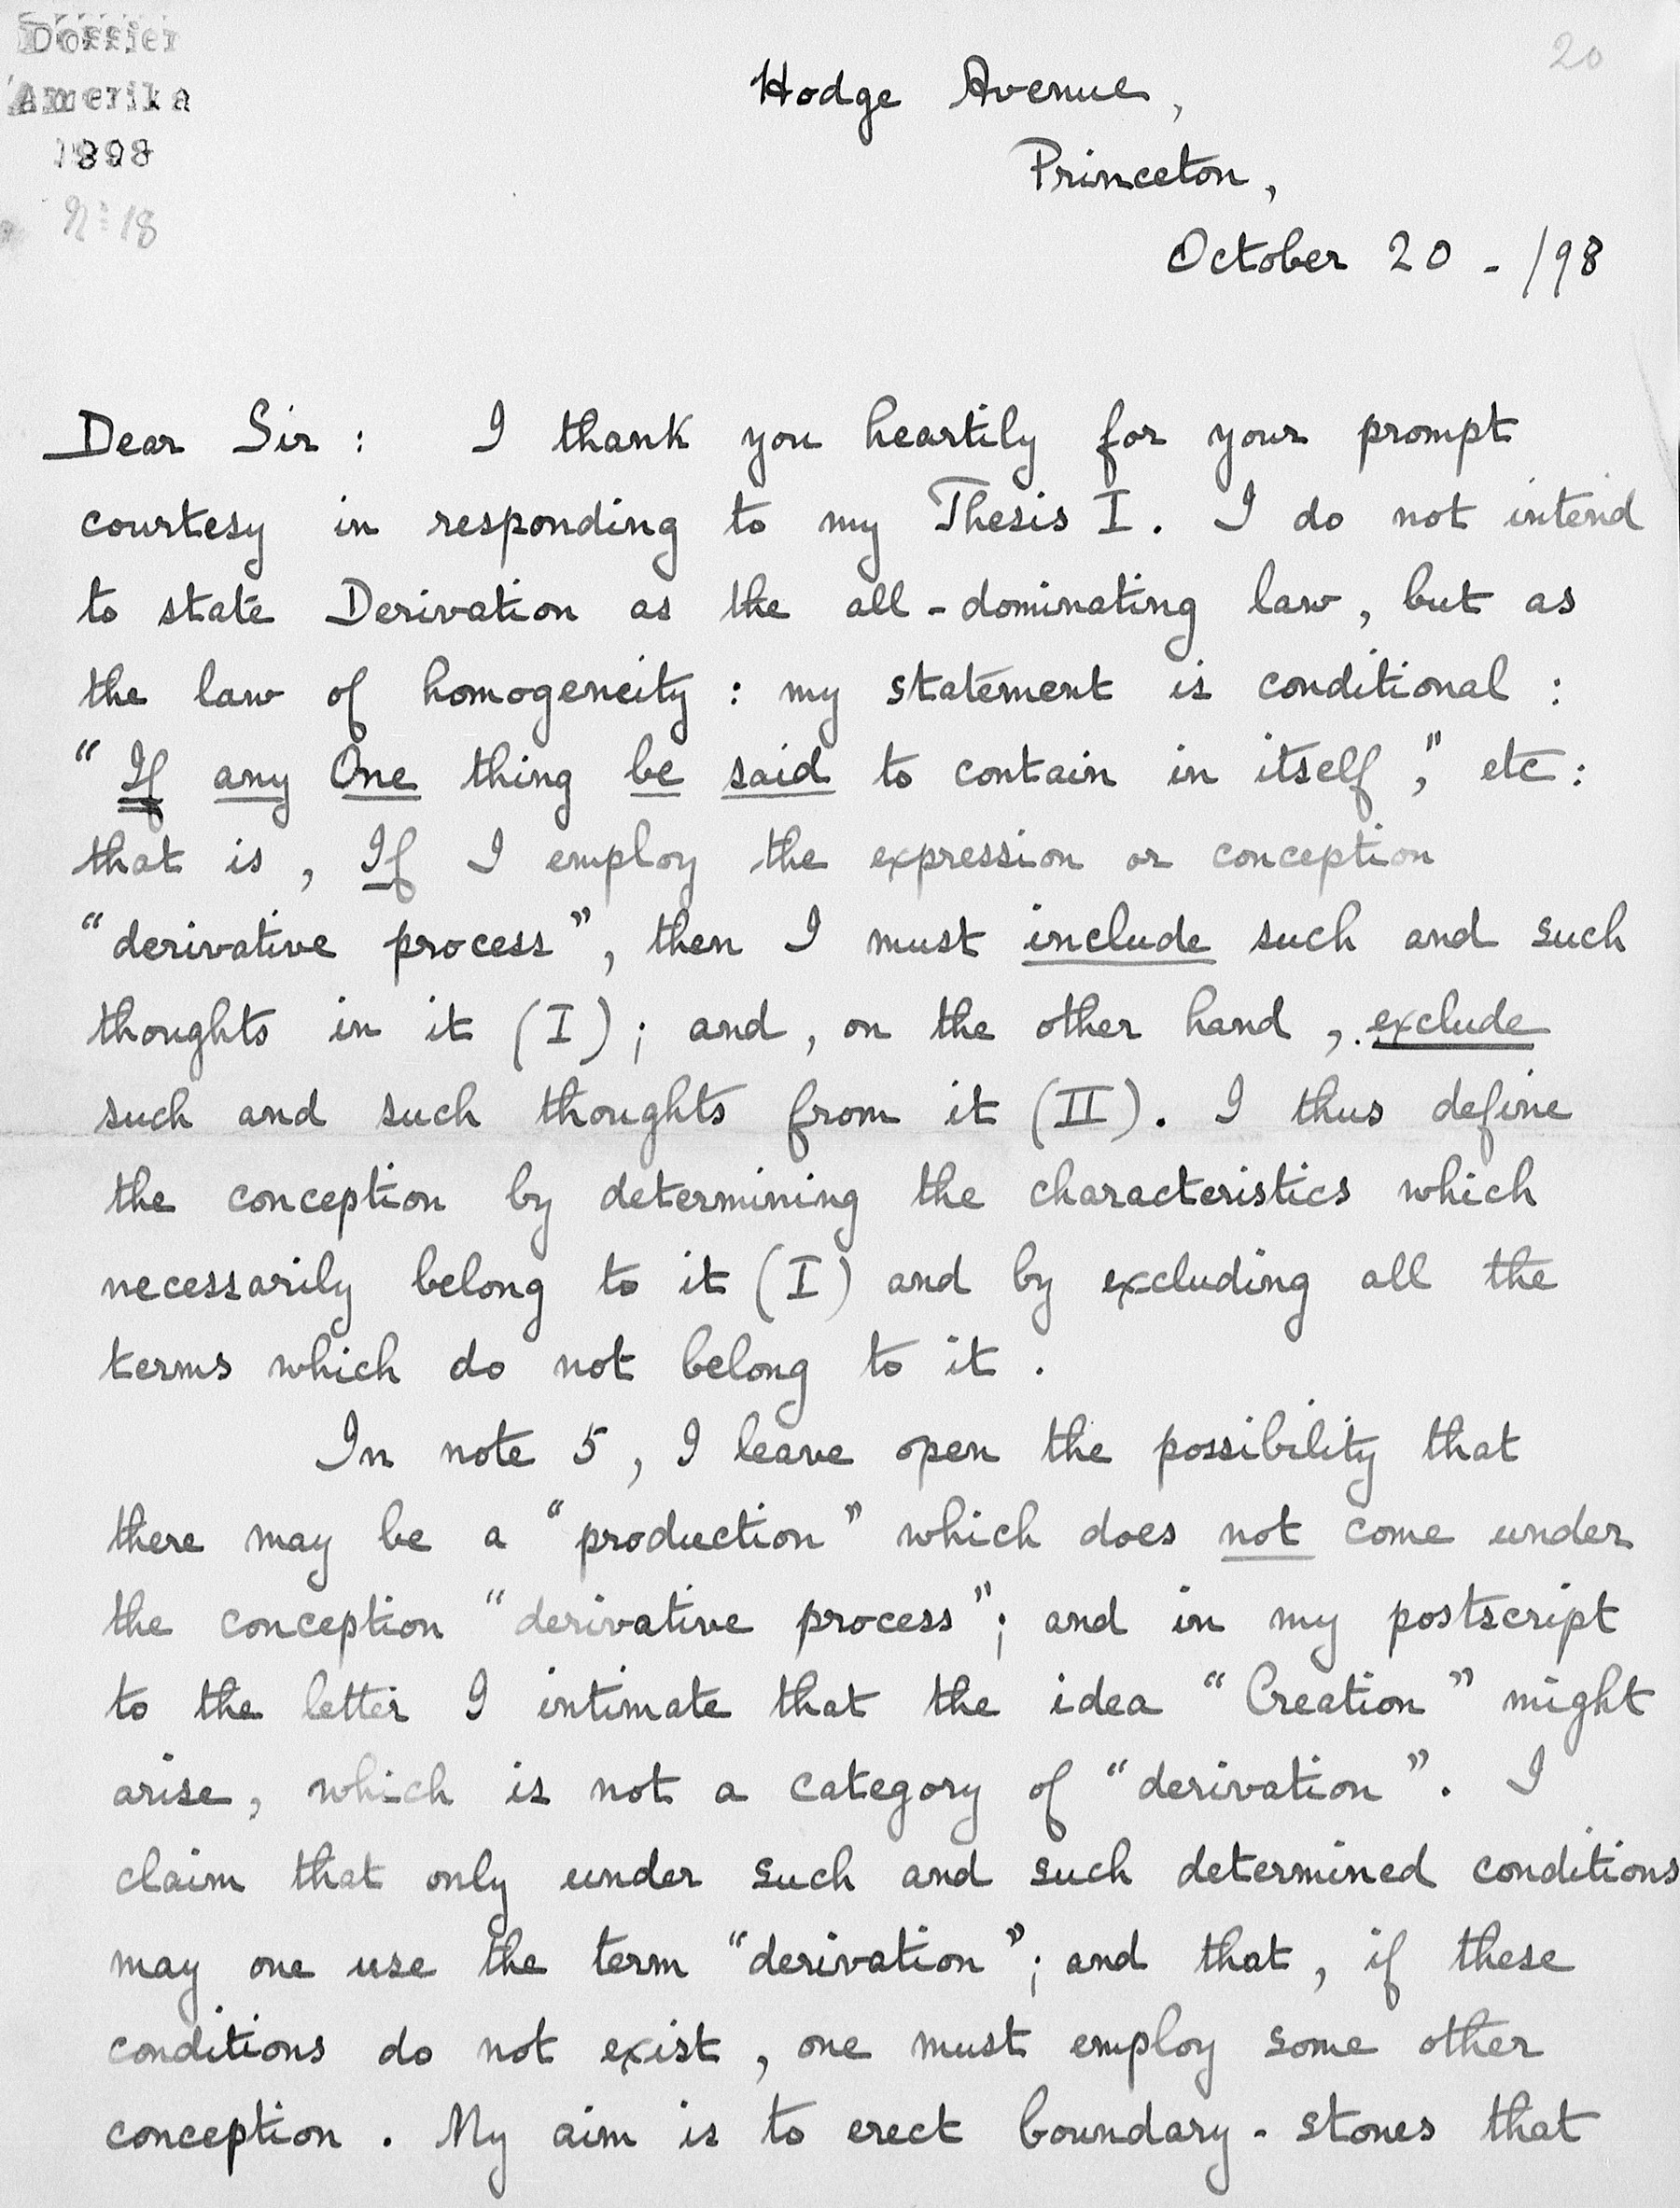 Dossier
Amerika
1898
No 18
20
Hodge Avenue,
Princeton,
October 20 - /98
Dear Sir : I thank you heartily for your prompt
courtesy in responding to my Thesis I. I do not intend
to state Derivation as the all-dominating law, but as
the law of homogeneity : my statement is conditional :
“If any One thing be said to contain in itself,” etc :
that is, If I employ the expression or conception
“derivative process”, then I must include such and such
thoughts in it (I); and, on the other hand, exclude
such and such thoughts from it (II). I thus define
the conception by determining the characteristics which
necessarily belong to it (I) and by excluding all the
terms which do not belong to it.
In note 5, I leave open the possibility that
there may be a “production” which does not come under
the conception “derivative process”; and in my postscript
to the letter I intimate that the idea “Creation” might
arise, which is not a category of “derivation”. I
claim that only under such and such determined conditions
may one use the term “derivation”; and that, if these
conditions do not exist, one must employ some other
conception. My aim is to erect boundary-stones that